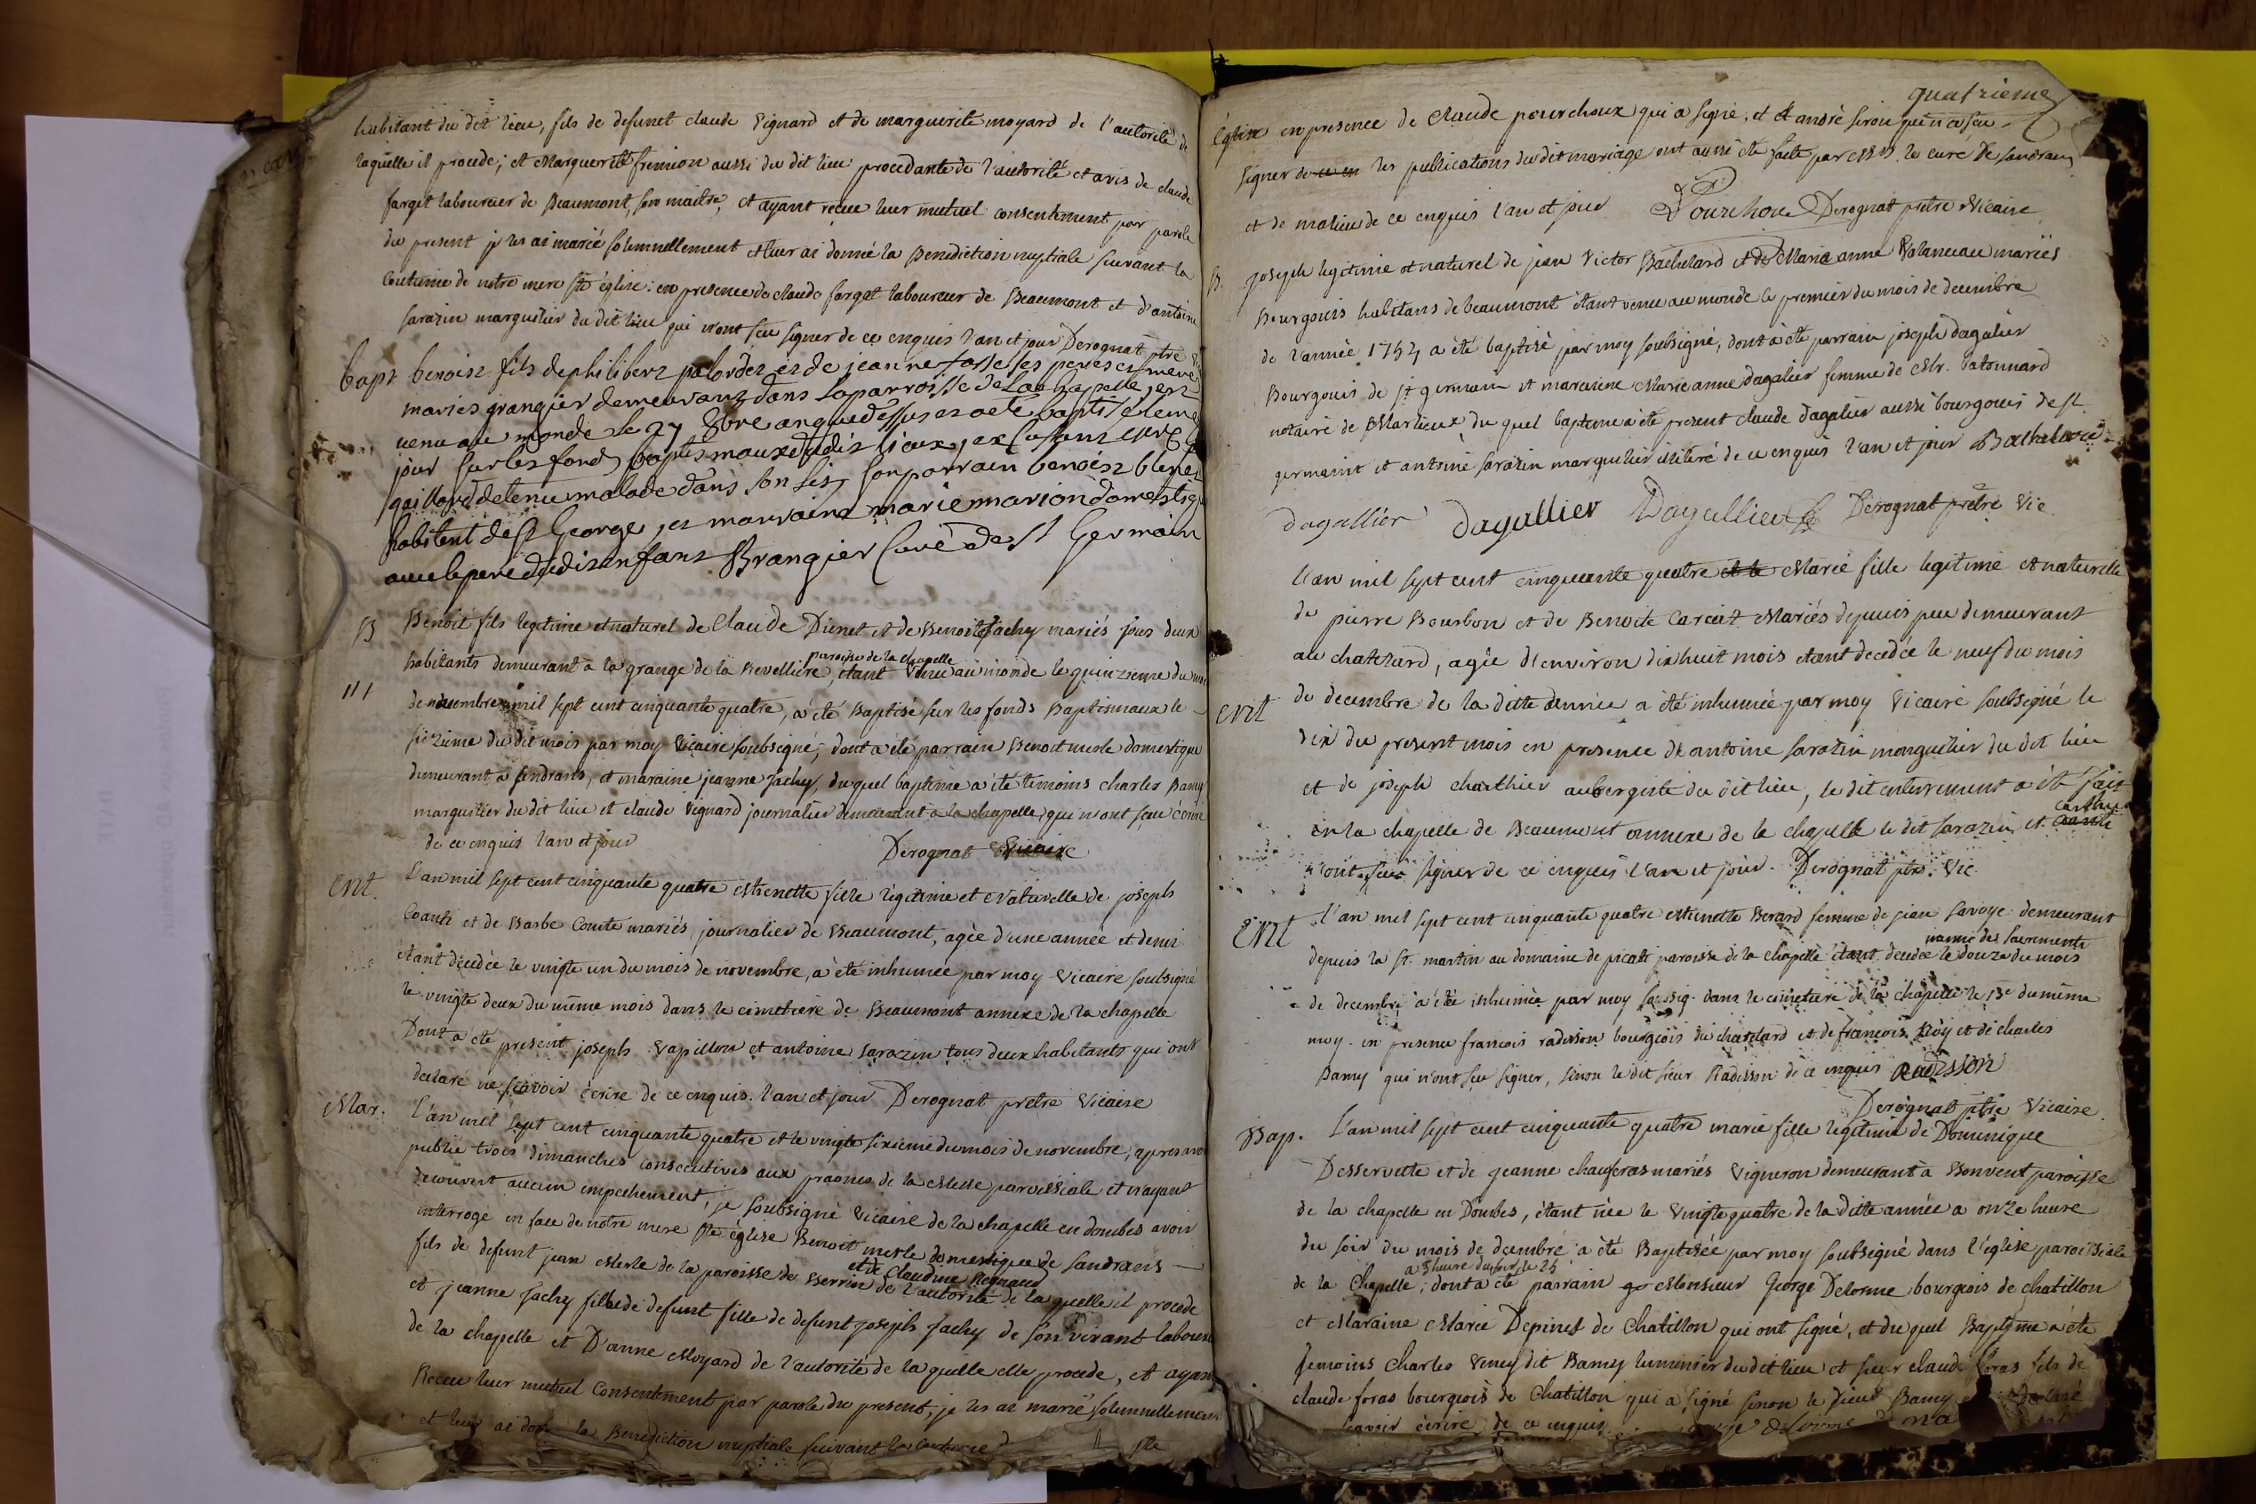 habitant du dit lieu, fils de defunct claude Vignard et de marguerite moyard de l'autorité de
laquelle il procede; et Marguerite fremion aussi du dit lieu procedante de l'autorité et avis de claude
farget laboureur de Beaumont, son maitre, et ayant recue leur mutuel consentement par parole
du present je les ai marié solemnellement et leur ai donné la Benediction nuptiale suivant la
Coutume de notre mere Ste église: en presence de claude farget laboureur de Beaumont et d'antoine
sarazin marguilier du dit lieu qui n'ont sceu signer de ce enquis l'an et jour Derognat ptre
bapt benoist fils de philibert palordet et de jeanne fosse ses peres et mere
maries grangier demeurant dans la parroisse de La Chapelle, est
venu au monde le 27 8bre an que dessus et a ete baptisé le meme
jour sur les fonds baptismaux du dit lieux, et
gaillard detenu malade dans son list, son parrain benoist
habitent de St George, et marraine marie marion domestique
avec le pere du dit enfant Brangier Curé de St Germain
B Benoit fils legitime et naturel de Claude Dienet et de Benoite Jachy mariés tous deux
paroisse de la Chapelle
habitants demeurant a la grange de la Revelliere, étant venu au monde le quinzieme du mois
de novembre mil sept cent cinquante quatre, a été Baptisé sur les fonds Baptismaux le
sizieme du dit mois par moy Vicaire soubsigné, dont a été parrain Benoit merle domestique
demeurant a sandrans, et maraine jeanne Jachy, du quel baptême a été temoins charles Bamy
marguilier du dit lieu et claude Vignard journalier demeurant a la chapelle qui n'ont sceu écrire
de ce enquis l'an et jour Derognat Vicaire
Ent. L'an mil sept cent cinquante quatre Etienette fille légitime et Naturelle de joseph
Coanti et de Barbe Comte mariés journalier de Beaumont, agée d'une année et demi
étant décédée le vingte un du mois de novembre, a été inhumée par moy Vicaire soubsigné
le vingte deux du même mois dans le cimetiere de Beaumont annexe de la chapelle
Dont a été présent joseph Vapillon et antoine sarazin tous deux habitants qui ont
declaré ne sçavoir écrire de ce enquis. l'an et jour Derognat prêtre Vicaire
Mar. L'an mil sept cent cinquante quatre et le vingte sixieme du mois de novembre, apres avoir
publié trois dimanches consecutives aux prosnes de la Messe paroissiale et n'ayant
decouvert aucun empechement, je soubsigné Vicaire de la chapelle en dombes avoir
interrogé en face de notre mere Ste église Benoit merle domestique de sandrans
et de Claudine Reynaud
fils de defunt jean Merle de la paroisse de Berrin de l'autorité de laquelle il procede
et jeanne Jachy fille de defunt fille de defunt joseph Jachy de son vivant laboureur
de la chapelle et D'anne Moyard de l'autorité de la quelle elle procede, et ayant
Receu leur mutuel Consentement par parole du present, je les ai marié solemnellement
et leur ai donné la Benediction nuptiale suivant la coutume
quatrieme
Église en presence de Claude pourchoux qui a signé, et d'andré sirou qui n'a sceu
signer de ce en les publications du dit mariage ont aussi été faitte par Mr. le curé De sandrans
et de Malieu de ce enquis l'an et jour Pourchoux Derognat prêtre Vicaire
B. joseph legitime et naturel de jean Victor Bachelard et de Marie anne Rolanceau mariés
Bourgois habitans de beaumont étant venu au monde le premier du mois de decembre
de l'année 1754 a été baptisé par moy soubsigné, dont a été parrain joseph dagalier
Bourgois de St germain et maraine Marie anne dagalier femme de Mr. batonnard
notaire de Marlieux du quel baptême a été present claude dagalier aussi bourgois de st.
germaint et antoine sarazin marguilier illitéré de ce enquis l'an et jour Bachelard
dagallier dagallier Dagallier Derognat prêtre Vic.
L'an mil sept cent cinquante quatre et le Marie fille legitime et naturelle
de pierre Bourbon et de Benoite Carcat Mariés depuis peu demeurant
au chatelard, agée d'environ dix huit mois etant decedée le neuf du mois
Ent de decembre de la ditte année a été inhumée par moy Vicaire soubsigné le
dix du present mois en presence de antoine sarazin marguilier du dit lieu
et de joseph charthier aubergiste du dit lieu, le dit enterrement a été fait
en la chapelle de Beaumont annexe de la chapelle le dit sarazin et
n'ont sceu signer de ce enquis l'an et jour. Derognat ptre. Vic.
Ent L'an mil sept cent cinquante quatre Etienette Berard femme de jean savoye demeurant
munie des sacrements
depuis la St. martin au domaine de picati paroisse de la chapelle étant decedée le douze du mois
de decembre a été inhumée par moy soussig. dans le cimetiere de la chapelle le 13e du même
moy. en presence francois radisson bourgeois du chatelard et de francois Roy et de charles
Bamy qui n'ont sceu signer, sinon le dit sieur Radisson de ce enquis RADISSON
Derognat ptre Vicaire
Bap. L'an mil sept cent cinquante quatre marie fille legitime de Dominique
Desservette et de jeanne chauferas mariés Vigneron demeurant a Bonvent paroisse
de la chapelle en Dombes, étant née le Vingte quatre de la ditte année a onze heure
du soir du mois de decembre a été Baptisée par moy soubsigné dans l'église paroissiale
a 3 heure du soir le 25
de la Chapelle; dont a été parrain Monsieur George Delorme bourgeois de chatillon
et Maraine Marie Depinet de Chatillon qui ont signé, et du quel Baptême a été
temoins charles Veney dit Bamy luminier du dit lieu et sieur claude foras fils de
claude foras bourgeois de Chatillon qui a signé sinon le Bamy declaré
scavoir écrire de ce enquis delorme